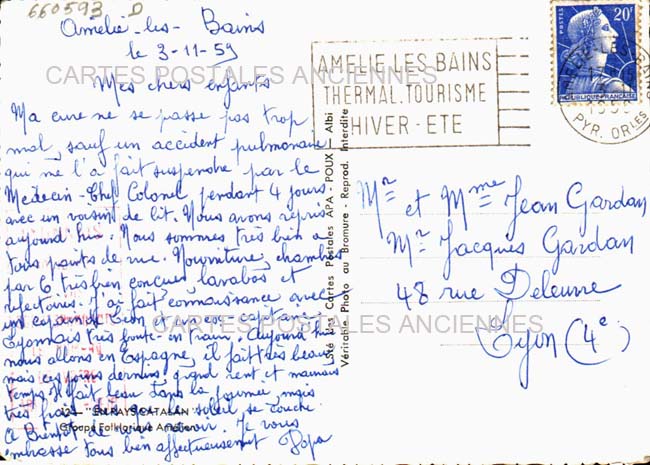 660593 D
Amélie-les-Bains
le 3-11-59
Mes chers enfants
Ma cure ne se passe pas trop
mal, sauf un accident pulmonaire
qui me l'a fait suspendre par le
Médecin-Chef Colonel pendant 4 jours
avec un voisin de lit. Nous avons repris
aujourd'hui. Nous sommes très bien à
tous points de vue. Nourriture, chambres
par 6 très bien conçues, lavabos et
réfectoires. J'ai fait connaissance avec
un copain de Lion un ex capitaine
Lyonnais très boute-en-train. Aujourd'hui
nous allons en Espagne, il fait très beau
mais ces jours derniers, grand vent et mauvais
temps. Il fait beau dans la journée, mais
très frais soleil se couche
A Bientôt de vous revoir. Je vous
embrasse tous bien affectueusement Papa
12 — "EN PAYS CATALAN"
Groupe Folklorique Amélien
Les Cartes Postales APA - POUX - Albi
Véritable Photo au Bromure - Reprod. Interdite
AMELIE LES BAINS
THERMAL.TOURISME
HIVER - ETE
POSTES
20F
REPUBLIQUE FRANÇAISE
AMELIE-LES-BAINS
1959
PYR. ORles
Mr et Mme Jean Gardan
Mr Jacques Gardan
48 rue Deleuvre
Lyon (4e)
CARTES POSTALES ANCIENNES
CARTES POSTALES ANCIENNES